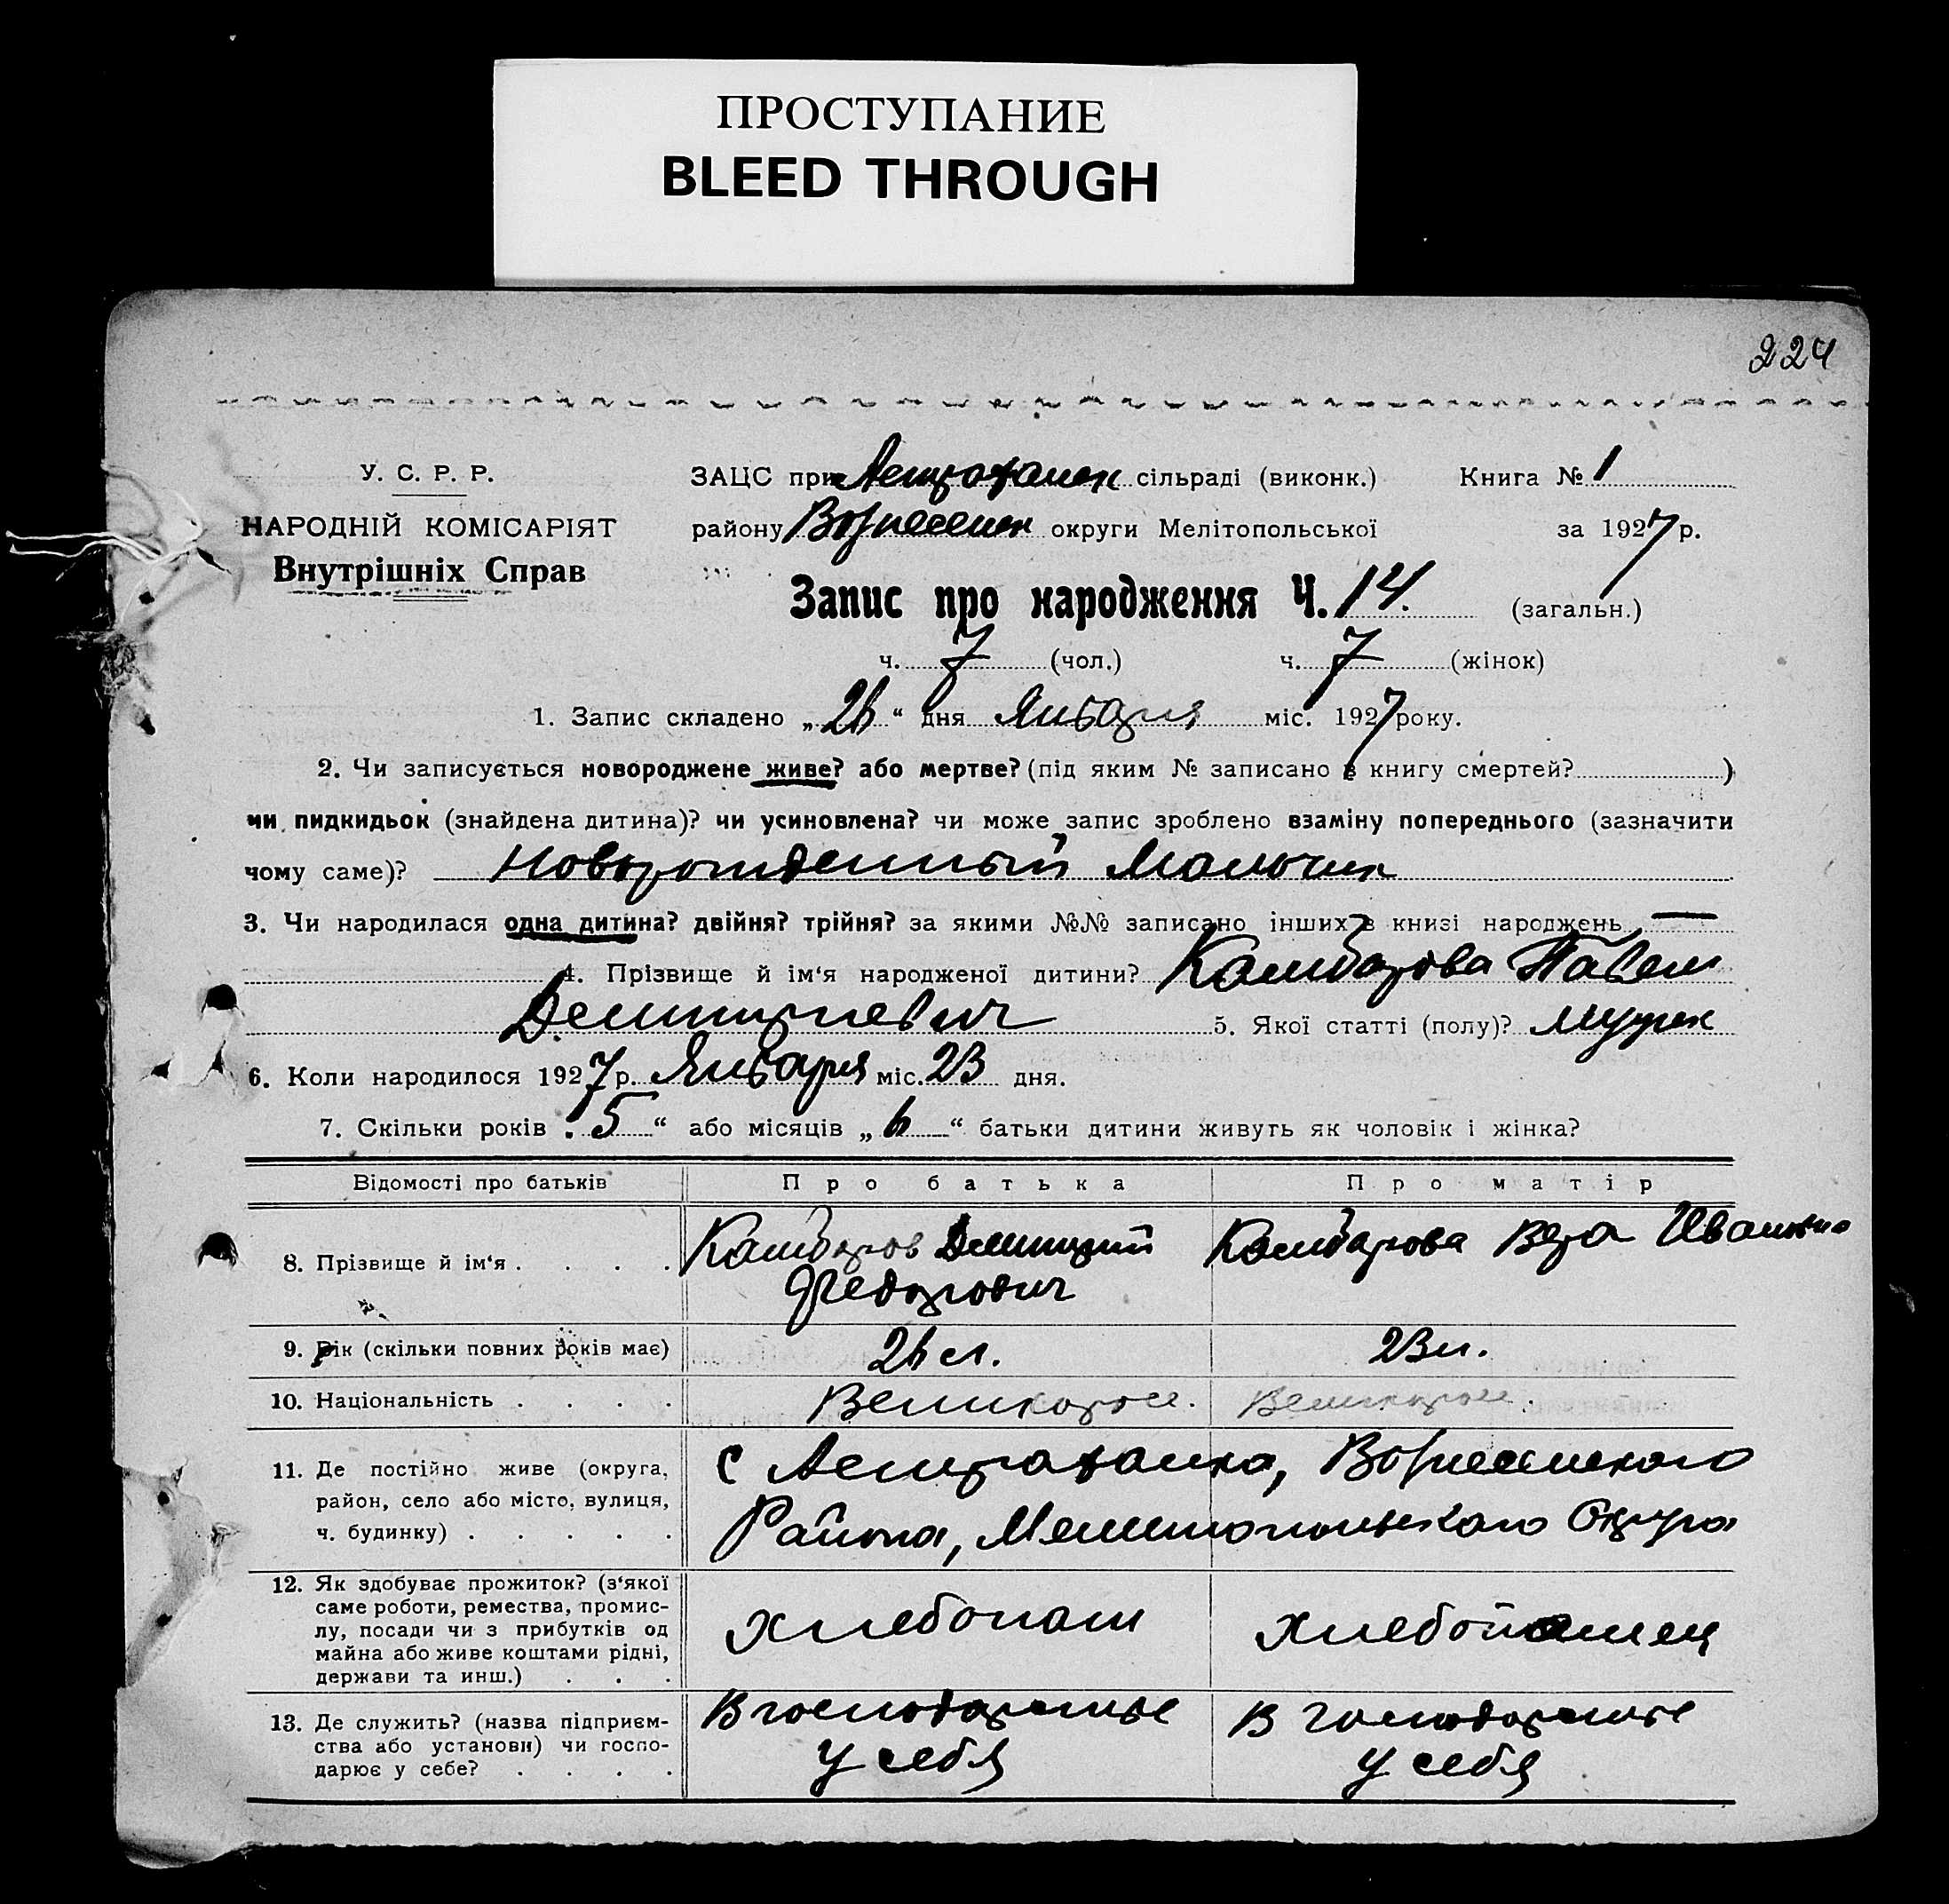 ПРОСТУПАНИЕ
BLEED THROUGH
224
У. С. Р. Р.
НАРОДНІЙ КОМІСАРІЯТ
Внутрішніх Справ
ЗАЦС при Астрахан сільраді (виконк.) Книга № 1
району Вознесенк округи Мелітопольської за 1927 р.
Запис про народження Ч. 14. (загальн.)
ч. 7 (чол.) ч. 7 (жінок)
1. Запис складено „26“ дня Января міс. 1927 року.
2. Чи записується новороджене живе? або мертве? (під яким № записано в книгу смертей? )
чи пидкидьок (знайдена дитина)? чи усиновлена? чи може запис зроблено взаміну попереднього (зазначити
чому саме)? Новорожденный Мальчик
3. Чи народилася одна дитина? двійня? трійня? за якими №№ записано інших в книзі народжень —
4. Прізвище й ім‘я народженої дитини? Камбарова Павел
Дмитриевич 5. Якої статті (полу)? Мужск
6. Коли народилося 1927 р. Января міс. 23 дня.
7. Скільки років „5“ або місяців „6“ батьки дитини живуть як чоловік і жінка?
Відомості про батьків Про батька Про матір
8. Прізвище й ім‘я . . . . Камбаров Дмитрий Федорович Камбарова Вера Ивановна
9. Рік (скільки повних років має) 26 л. 23 л.
10. Національність . . . . Великорос. Великорос.
11. Де постійно живе (округа,
район, село або місто, вулиця,
ч. будинку) . . . . .
с Астраханка, Вознесенского
Района, Мелитопольского Округа
12. Як здобуває прожиток? (з‘якої
саме роботи, ремества, промис-
лу, посади чи з прибутків од
майна або живе коштами рідні,
держави та инш.) . . .
Хлебопаш Хлебопашец
13. Де служить? (назва підприєм-
ства або установи) чи госпо-
дарює у себе? . . . .
В господарстве
у себя
В господарстве
у себя